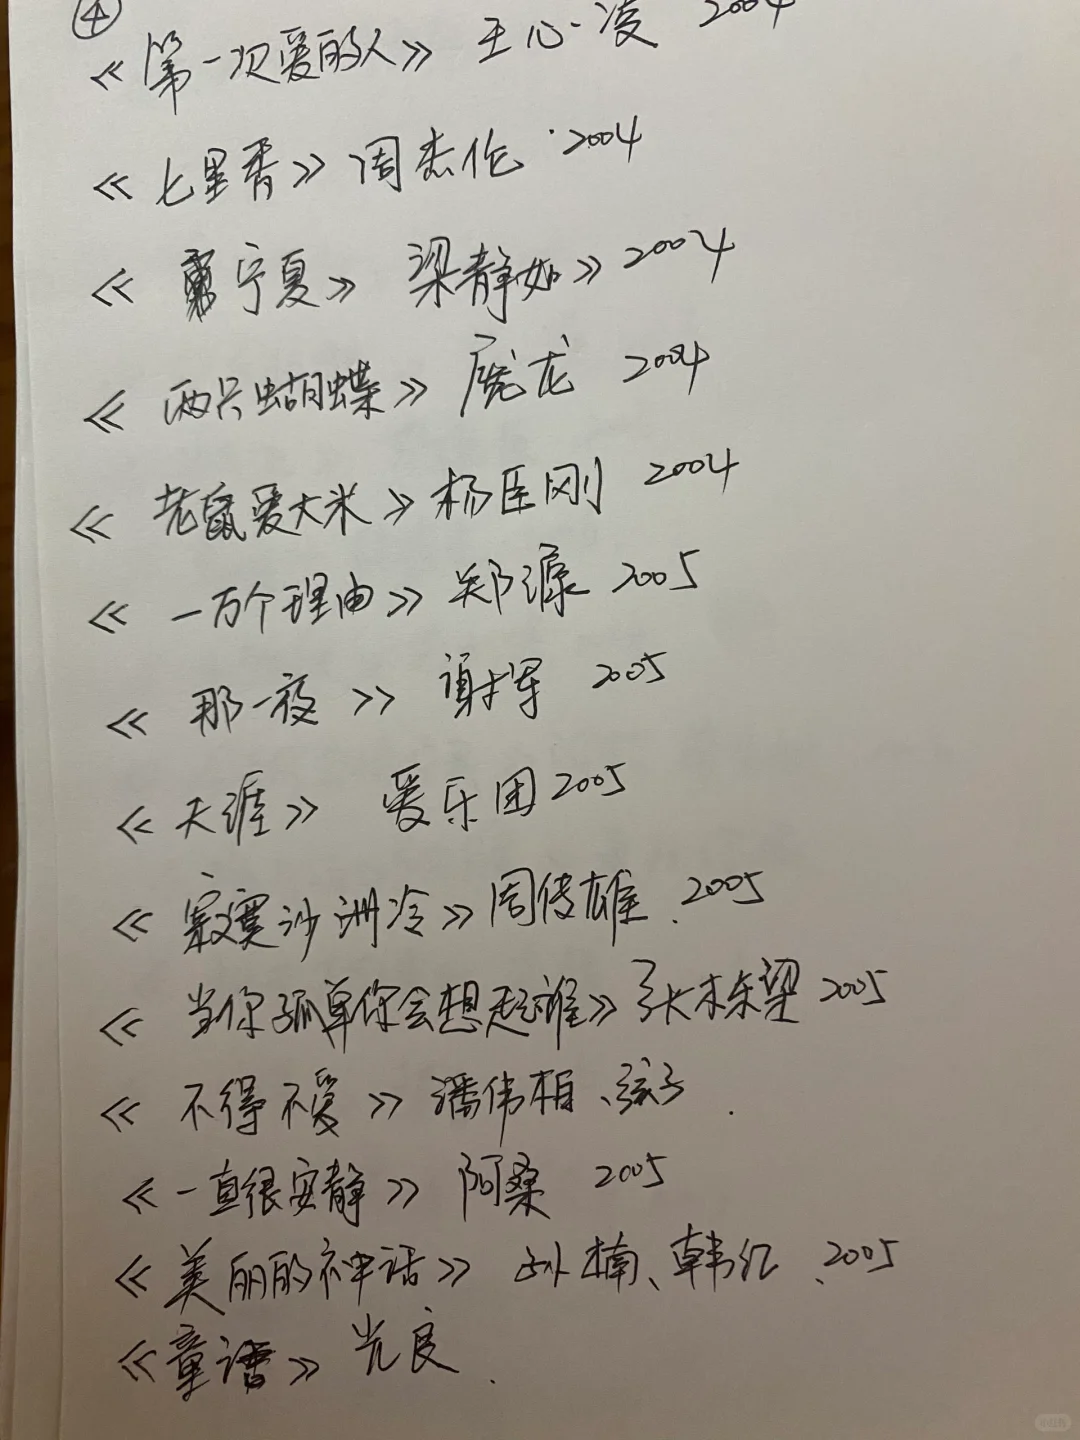 ④
《第一次爱的人》 王心凌 2004
《七里香》周杰伦 · 2004
《宁夏》 梁静如》2004
《两只蝴蝶》 庞龙 2004
《老鼠爱大米》杨臣刚 2004
《一万个理由》郑源 2005
《那一夜》 谢军 2005
《天涯》 爱乐团 2005
《寂寞沙洲冷》周传雄 . 2005
《当你孤单你会想起谁》张栋梁 2005
《不得不爱》潘伟柏、弦子 .
《一直很安静》 阿桑 2005
《美丽的神话》 孙楠、韩红、2005
《童话》 光良 .
小红书